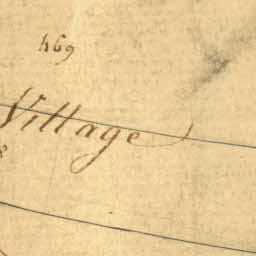 469
Village
8